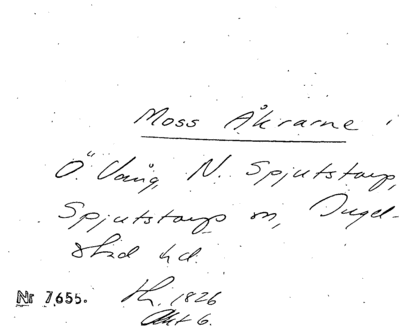 Moss Åkrarne
Ö. Vång, N. Spjutstorp,
Spjutstorps sn, Ingel-
stad hd.
Nr 7655. th. 1826
Akt 6.